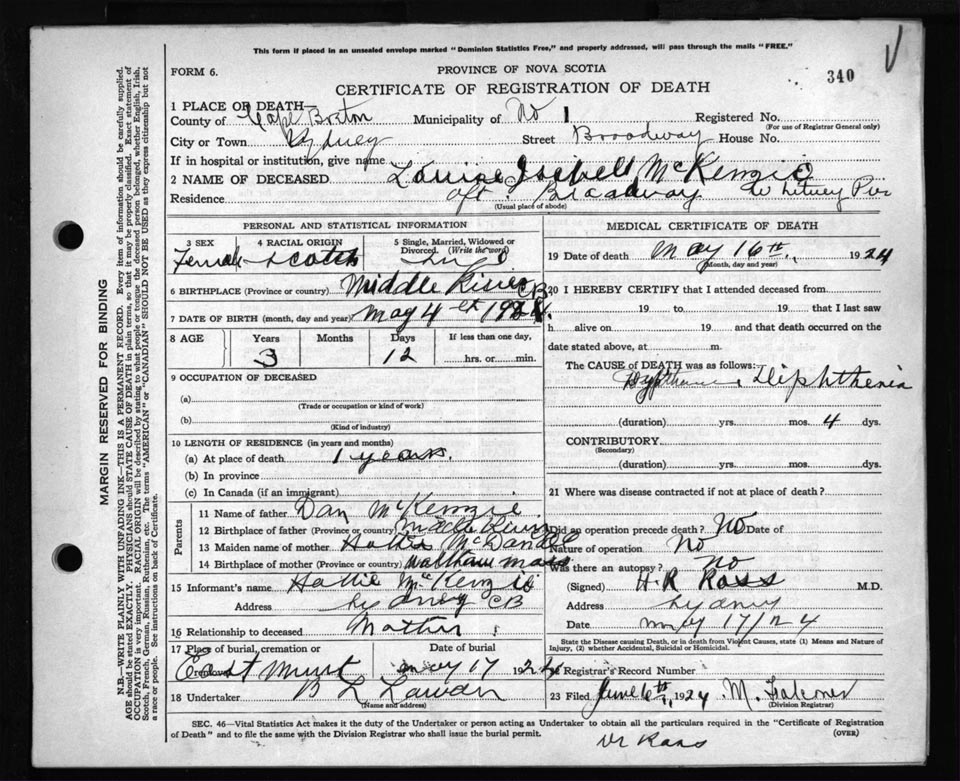 This form if placed in an unsealed envelope marked "Dominion Statistics Free," and properly addressed, will pass through the mails "FREE."
FORM 6.
PROVINCE OF NOVA SCOTIA
340
CERTIFICATE OF REGISTRATION OF DEATH
1 PLACE OF DEATH
County of Cape Breton Municipality of No 1 Registered No.
(For use of Registrar General only)
City or Town Sydney Street Broadway House No.
If in hospital or institution, give name
2 NAME OF DECEASED Louise Isebell McKenzie
Residence Broadway Whitney Pier
(Usual place of abode)
PERSONAL AND STATISTICAL INFORMATION
3 SEX 4 RACIAL ORIGIN 5 Single, Married, Widowed or Divorced. (Write the word)
Female Scotch
6 BIRTHPLACE (Province or country) Middle River CB
7 DATE OF BIRTH (month, day and year) May 4
8 AGE Years Months Days If less than one day,
3 12 hrs. or min.
9 OCCUPATION OF DECEASED
(a)
(Trade or occupation or kind of work)
(b)
(Kind of industry)
10 LENGTH OF RESIDENCE (in years and months)
(a) At place of death 1 years.
(b) In province
(c) In Canada (if an immigrant)
Parents
11 Name of father Dan McKenzie
12 Birthplace of father (Province or country) Middle River
13 Maiden name of mother Hattie McDanold
14 Birthplace of mother (Province or country) Waltham mass
15 Informant's name Hattie McKenzie
Address Sydney CB
16 Relationship to deceased Mother
17 Place of burial, cremation or removal Date of burial
East Mount May 17 1924
18 Undertaker B L
(Name and address)
MEDICAL CERTIFICATE OF DEATH
19 Date of death May 16th 1924
(Month, day and year)
20 I HEREBY CERTIFY that I attended deceased from
19 to 19 that I last saw
h alive on 19 and that death occurred on the
date stated above, at m.
The CAUSE OF DEATH was as follows:
Diphtheria
(duration) yrs. mos. 4 dys.
CONTRIBUTORY
(Secondary)
(duration) yrs. mos. dys.
21 Where was disease contracted if not at place of death?
Did an operation precede death? No Date of
Nature of operation No
Was there an autopsy? no
(Signed) H R Ross M.D.
Address Sydney
Date May 17/24
State the Disease causing Death, or in death from Violent Causes, state (1) Means and Nature of Injury, (2) whether Accidental, Suicidal or Homicidal.
22 Registrar's Record Number
23 Filed June 6th 1924 M. Falconer
(Division Registrar)
SEC. 46—Vital Statistics Act makes it the duty of the Undertaker or person acting as Undertaker to obtain all the particulars required in the "Certificate of Registration
of Death" and to file the same with the Division Registrar who shall issue the burial permit.
(OVER)
Dr Ross
MARGIN RESERVED FOR BINDING
N.B.—WRITE PLAINLY WITH UNFADING INK—THIS IS A PERMANENT RECORD. Every item of information should be carefully supplied.
AGE should be stated EXACTLY. PHYSICIANS should STATE CAUSE OF DEATH in plain terms, so that it may be properly classified. Exact statement of
OCCUPATION is very important. RACIAL ORIGIN will be described by stating to what people or tongue the deceased person belonged, whether English, Irish,
Scotch, French, German, Russian, Ruthenian, etc. The terms "AMERICAN" or "CANADIAN" SHOULD NOT BE USED as they express citizenship but not
a race or people. See instructions on back of Certificate.